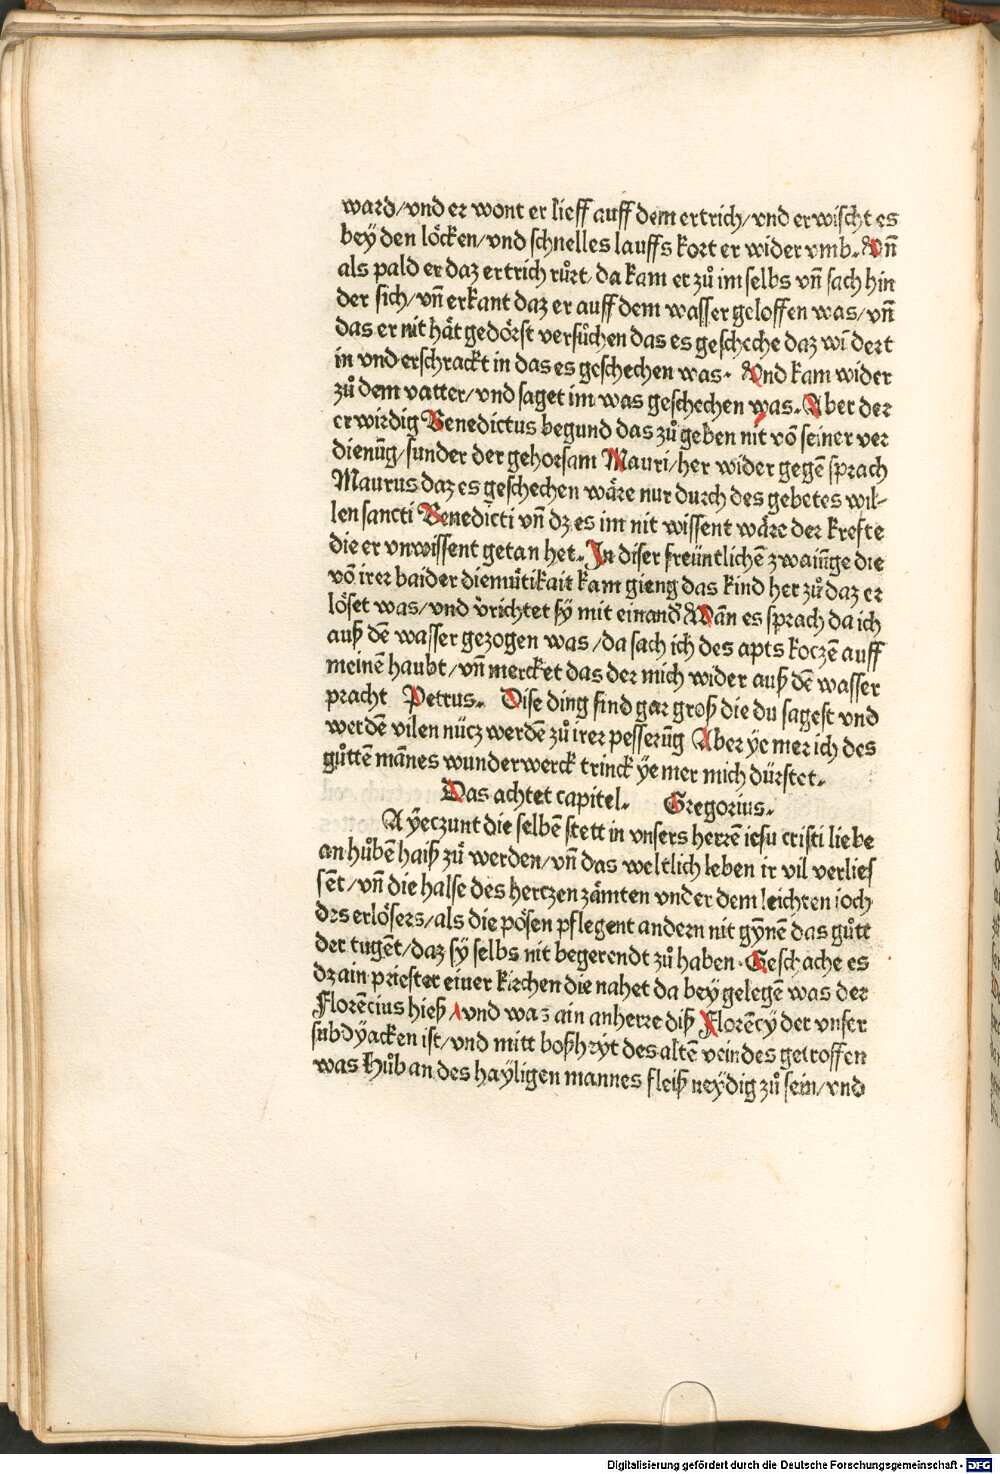 ward/vnd er wont er lieff auff dem ertrich/vnd erwischt es
bey den löcken/vnd schnelles lauffs kort er wider vmb. Vn̄
als pald er daz ertrich růrt/da kam er zů im selbs vn̄ sach hin
der sich/vn̄ erkant daz er auff dem wasser geloffen was/vn̄
das er nit hät gedörst versůchen das es gescheche daz wūdert
in vnd erschrackt in das es geschechen was. Vnd kam wider
zů dem vatter/vnd saget im was geschechen was. Aber der
erwirdig Benedictus begund das zů geben nit vō seiner ver
dienūg/sunder der gehorsam Mauri/her wider gegē sprach
Maurus daz es geschechen wäre nur durch des gebetes wil-
len sancti Benedicti vn̄ dz es im nit wissent wäre der krefte
die er vnwissent getan het. In diser freüntlichē zwaiūge die
vō irer baider diemůtikait kam gieng das kind her zů daz er
löset was/vnd v̄richtet sy mit einand̄ Wān es sprach da ich
auß dē wasser gezogen was/da sach ich des apts koczē auff
meinē haubt/vn̄ mercket das der mich wider auß dē wasser
pracht Petrus. Dise ding sind gar groß die du sagest vnd
werdē vilen nücz werdē zů irer pesserūg Aber ye mer ich des
gůttē mānes wunderwerck trinck ye mer mich dürstet.
Das achtet capitel. Gregorius.
A yeczunt die selbē stett in vnsers herrē iesu cristi liebe
an hůbē haiß zů werden/vn̄ das weltlich leben ir vil verlies
sēt/vn̄ die halse des hertzen zämten vnder dem leichten ioch
des erlösers/als die pösen pflegent andern nit gynnē das gůtt
der tugēt/daz sy selbs nit begerendt zů haben. Geschache es
dz ain priester einer kirchen die nahet da bey gelegē was der
Florēcius hieß/vnd waz ain anherre diß Florēcy der vnser
subdyacken ist/vnd mitt boßheyt des altē veindes getroffen
was Hůb an des hayligen mannes fleiß neydig zů sein/vnd
Digitalisierung gefördert durch die Deutsche Forschungsgemeinschaft - DFG